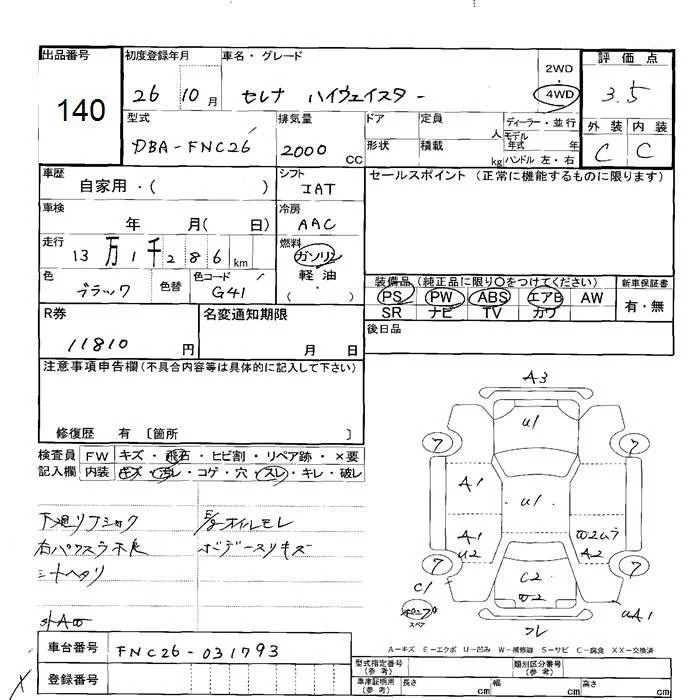 出品番号 初度登録年月 車名・グレード 評価点
140
26 10月 セレナ ハイウェイスター
2WD
4WD
3.5
型式 排気量 ドア 定員 人 ディーラー・並行
DBA-FNC26 2000 CC 形状 積載 kg モデル年式 年
ハンドル 左・右
外装 内装
C C
車歴 シフト セールスポイント (正常に機能するものに限ります)
自家用・( ) IAT
車検 冷房
年 月( 日) AAC
走行 燃料
13万1千286km ガソリン
軽油
( )
色 色替 色コード
ブラック G41
装備品 (純正品に限り○をつけてください) 新車保証書
PS PW ABS エアB AW 有・無
SR ナビ TV カワ
後日品
R券 名変通知期限
11810 円 月 日
注意事項申告欄(不具合内容等は具体的に記入して下さい)
修復歴 有 〔箇所 〕
検査員 FW キズ・飛石・ヒビ割・リペア跡・×要
記入欄 内装 キズ・汚レ・コゲ・穴・スレ・キレ・破レ
E/gオイルモレ
右パワスラ不良 ボデースリキズ
シートヘタリ
A3
U1
7 7
A1
U1
A1
U2
A2
7 7
C2
W2
C1
スペア
uA1
フレ
車台番号 FNC26-031793
登録番号
A-キズ E-エクボ U-凹み W-補修跡 S-サビ C-腐食 XX-交換済
型式指定番号 (参考) 類別区分番号 (参考)
車庫証明用 (参考) 長さ cm 幅 cm 高さ cm